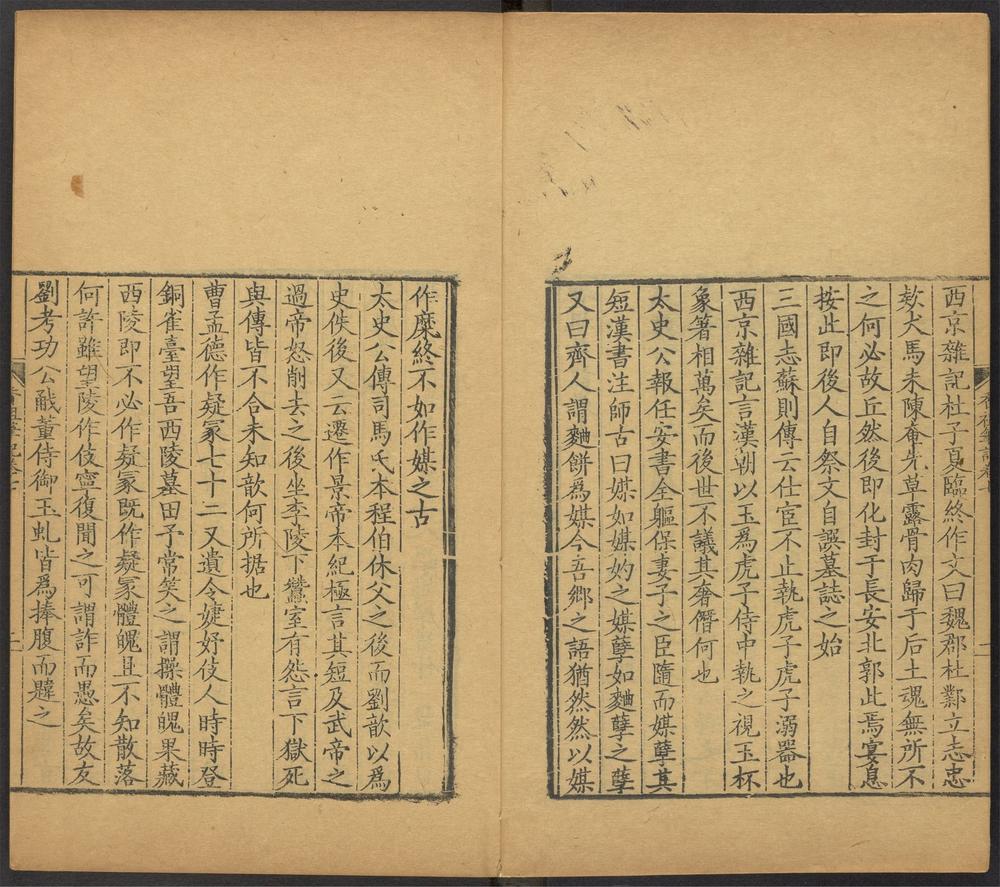 西京雜記杜子夏臨終作文曰魏郡杜鄴立志忠
欵犬馬未陳奄先草露骨肉歸于后土魂無所不
之何必故丘然後即化封于長安北郭此焉宴息
按此即後人自祭文自譔墓誌之始
三國志蘇則傳云仕宦不止執虎子虎子溺器也
西京雜記言漢朝以玉爲虎子侍中執之視玉杯
象箸相萬矣而後世不議其奢僭何也
太史公報任安書全軀保妻子之臣隨而媒孽其
短漢書注師古曰媒如媒妁之媒孽如麯孽之孽
又曰齊人謂麯餅爲媒今吾鄉之語猶然然以媒
作䴢終不如作媒之古
太史公傳司馬氏本程伯休父之後而劉歆以爲
史佚後又云遷作景帝本紀極言其短及武帝之
過帝怒削去之後坐李陵下蠶室有怨言下獄死
與傳皆不合未知歆何所据也
曹孟德作疑冢七十二又遺令婕妤伎人時時登
銅雀臺望吾西陵墓田予常笑之謂操體魄果藏
西陵即不必作疑冢既作疑冢體魄且不知散落
何許雖望陵作伎寧復聞之可謂詐而愚矣故友
劉考功公㦷董侍御玉虬皆爲捧腹而韙之